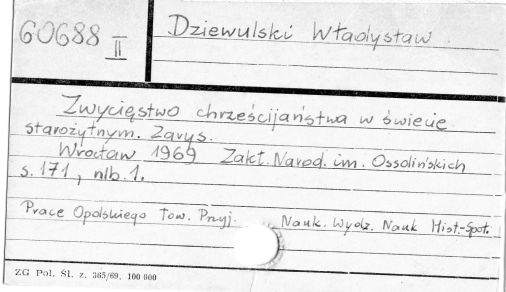 60688 II
Dziewulski Władysław.
Zwycięstwo chrześcijaństwa w świecie
starożytnym. Zarys.
Wrocław 1969 Zakt. Narod. im. Ossolińskich
s. 171, nlb. 1.
Prace Opolskiego Tow. Przyj. Nauk. Wydz. Nauk Hist.-Społ.
ZG Pol. Śl. z. 365/69. 100 000